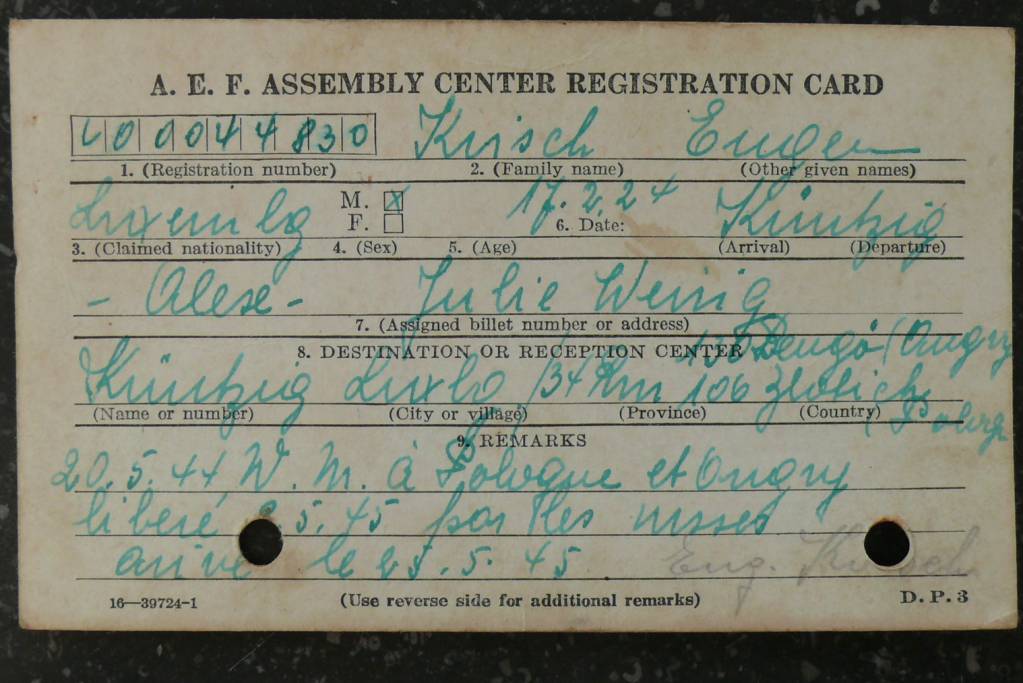 A. E. F. ASSEMBLY CENTER REGISTRATION CARD
00044830 Krisch Eugen
1. (Registration number) 2. (Family name) (Other given names)
Luxemb'g M. X 17.2.24 Küntzig
F. 6. Date:
3. (Claimed nationality) 4. (Sex) 5. (Age) (Arrival) (Departure)
- Alese - Julie Weirig
7. (Assigned billet number or address)
8. DESTINATION OR RECEPTION CENTER Pengö (Ongry
Küntzig Luxbg. 134 Rm 106 Zlotich
(Name or number) (City or village) (Province) (Country) (Pologn
9. REMARKS
20.5.44 W.M. à Pologne et Ongry
liberé .5.45 par les russes
arrivé le 25.5.45 Eug. Krisch
16—39724-1 (Use reverse side for additional remarks) D. P. 3